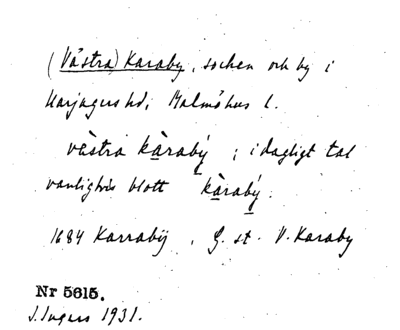 (Västra) Karaby, socken och by i
Harjagers hd, Malmöhus l.
västra kàrabý ; i dagligt tal
vanligtvis blott kàrabý.
1684 Karrabÿ, G. st. V. Karaby
Nr 5615.
J. Ingers 1931.